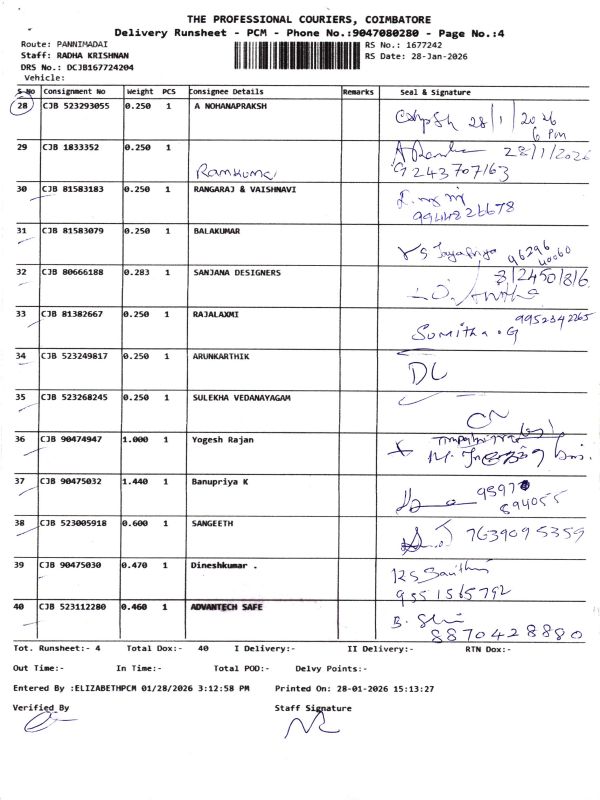 THE PROFESSIONAL COURIERS, COIMBATORE
Delivery Runsheet - PCM - Phone No.:9047080280 - Page No.:4
Route: PANNIMADAI
RS No.: 1677242
Staff: RADHA KRISHNAN
RS Date: 28-Jan-2026
DRS No.: DCJB167724204
Vehicle:
S No Consignment No Weight PCS Consignee Details Remarks Seal & Signature
28 CJB 523293055 0.250 1 A NOHANAPRAKSH 28/1/2026
6 Pm
29 CJB 1833352 0.250 1 Ramkumar 28/1/2026
9243707163
30 CJB 81583183 0.250 1 RANGARAJ & VAISHNAVI
9944826678
31 CJB 81583079 0.250 1 BALAKUMAR
96296
40060
32 CJB 80666188 0.283 1 SANJANA DESIGNERS
33 CJB 81382667 0.250 1 RAJALAXMI Sumitha.G 9952342265
34 CJB 523249817 0.250 1 ARUNKARTHIK DL
35 CJB 523268245 0.250 1 SULEKHA VEDANAYAGAM
36 CJB 90474947 1.000 1 Yogesh Rajan
37 CJB 90475032 1.440 1 Banupriya K
94055
38 CJB 523005918 0.600 1 SANGEETH 7639095359
39 CJB 90475030 0.470 1 Dineshkumar .
9551565792
40 CJB 523112280 0.460 1 ADVANTECH SAFE
8870428880
Tot. Runsheet:- 4 Total Dox:- 40 I Delivery:- II Delivery:- RTN Dox:-
Out Time:- In Time:- Total POD:- Delvy Points:-
Entered By :ELIZABETHPCM 01/28/2026 3:12:58 PM Printed On: 28-01-2026 15:13:27
Verified By Staff Signature